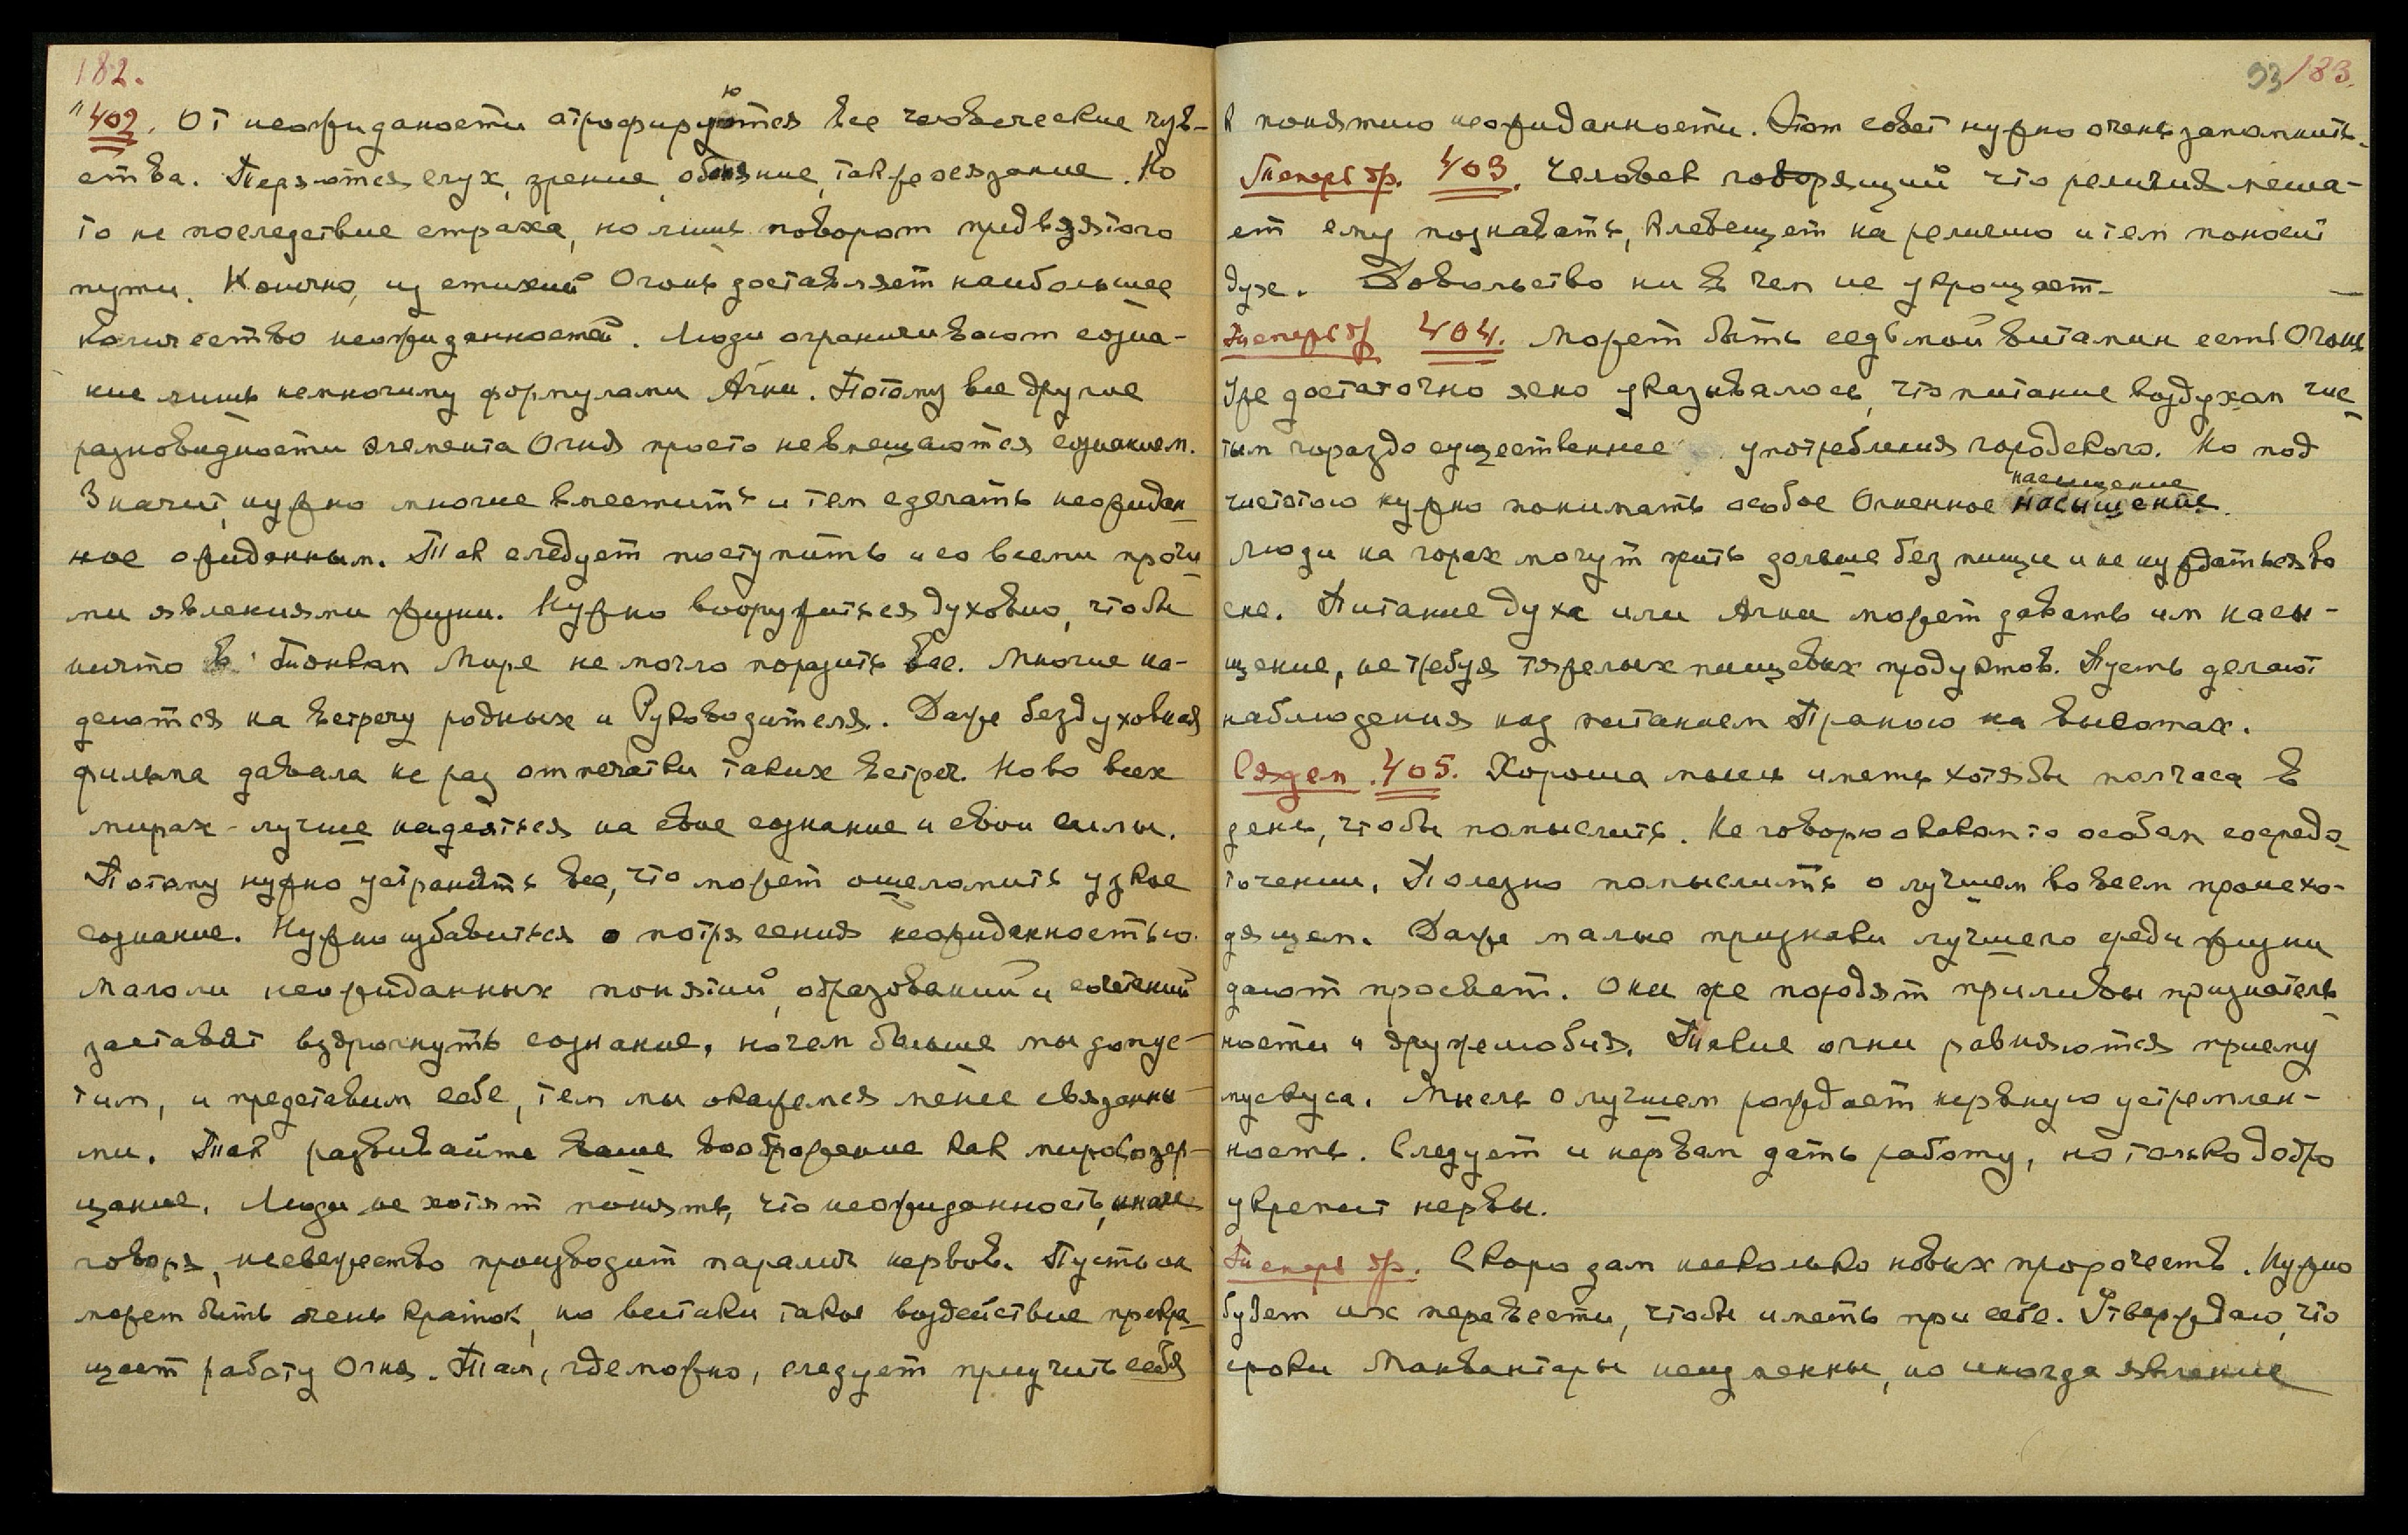 182.
"402. От неожиданости атрофируются все человеческие чув-
ства. Теряются слух, зрение, обоняние, также осязание. Но
то не последствие страха, но лишь поворот предвзятого
пути. Конечно, из стихий Огонь доставляет наибольшее
количество неожиданностей. Люди ограничивают созна-
ние лишь немногими формулами Агни. Потому все другие
разновидности элемента Огня просто не вмещаются сознанием.
Значит, нужно многие вместить и тем сделать неожидан-
ное ожиданным. Так следует поступить и со всеми прочи-
ми явлениями жизни. Нужно вооружиться духовно, чтобы
ничто в Тонком Мире не могло поразить Вас. Многие на-
деются на встречу родных и Руководителя. Даже бездуховная
фильма давала не раз отпечатки таких встреч. Но во всех
мирах - лучше надеяться на свое сознание и свои силы.
Потому нужно устранить все, что может ошеломить узкое
сознание. Нужно избавиться о потрясения неожиданностью.
Мало ли неожиданных понятий, образований и сочетаний
заставят вздрогнуть сознание, но чем больше мы допус-
тим, и представим себе, тем мы окажемся менее связанны-
ми. Так развивайте ваше воображение как мировозер-
цание. Люди не хотят понять, что неожиданность, иначе
говоря, невежество производит паралич нервов. Пусть он
может быть очень краток, но вистаки такое воздействие прекра-
щает работу Огня. Там, где можно, следует приучить себя
93 183.
к понятию неожиданности. Этот совет нужно очень запомнить.
Теперь др. 403. Человек говорящий что религия меша-
ет ему познавать, клевещет на религию и тем поносит
дух. Довольство ни в чем не укращает.
Теперь др 404. Может быть седьмой витамин есть Огонь
Уже достаточно ясно указывалось, что питание воздухом чис-
тым гораздо существеннее употребления городского. Но под
насыщение
чистотою нужно понимать особое Огненное насыщение.
Люди на горах могут жить дольше без пищи и не нуждаться во
сне. Питание духа или Агни может давать им насы-
щение, не требуя тяжелых пищевых продуктов. Пусть делают
наблюдения над питанием Праною на высотах.
Сядем. 405. Хороша мысль иметь хотя бы полчаса в
день, чтобы помыслить. Не говорю о каком то особом сосредо-
точении. Полезно помыслить о лучшем во всем происхо-
дящем. Даже малые признаки лучшего среди жизни
дают просвет. Они же породят приливы признатель-
ности и дружелюбия. Такие огни равняются приему
мускуса. Мысль о лучшем рождает нервную устремлен-
ность. Следует и нервам дать работу, но только добро
укрепит нервы.
Теперь др. Скоро дам несколько новых пророчеств. Нужно
будет их перевести, чтобы иметь при себе. Утверждаю, что
сроки Манвантары неизменны, но иногда явление